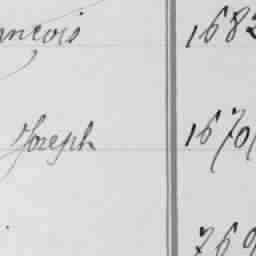 ançois 1682
Joseph 1670
769